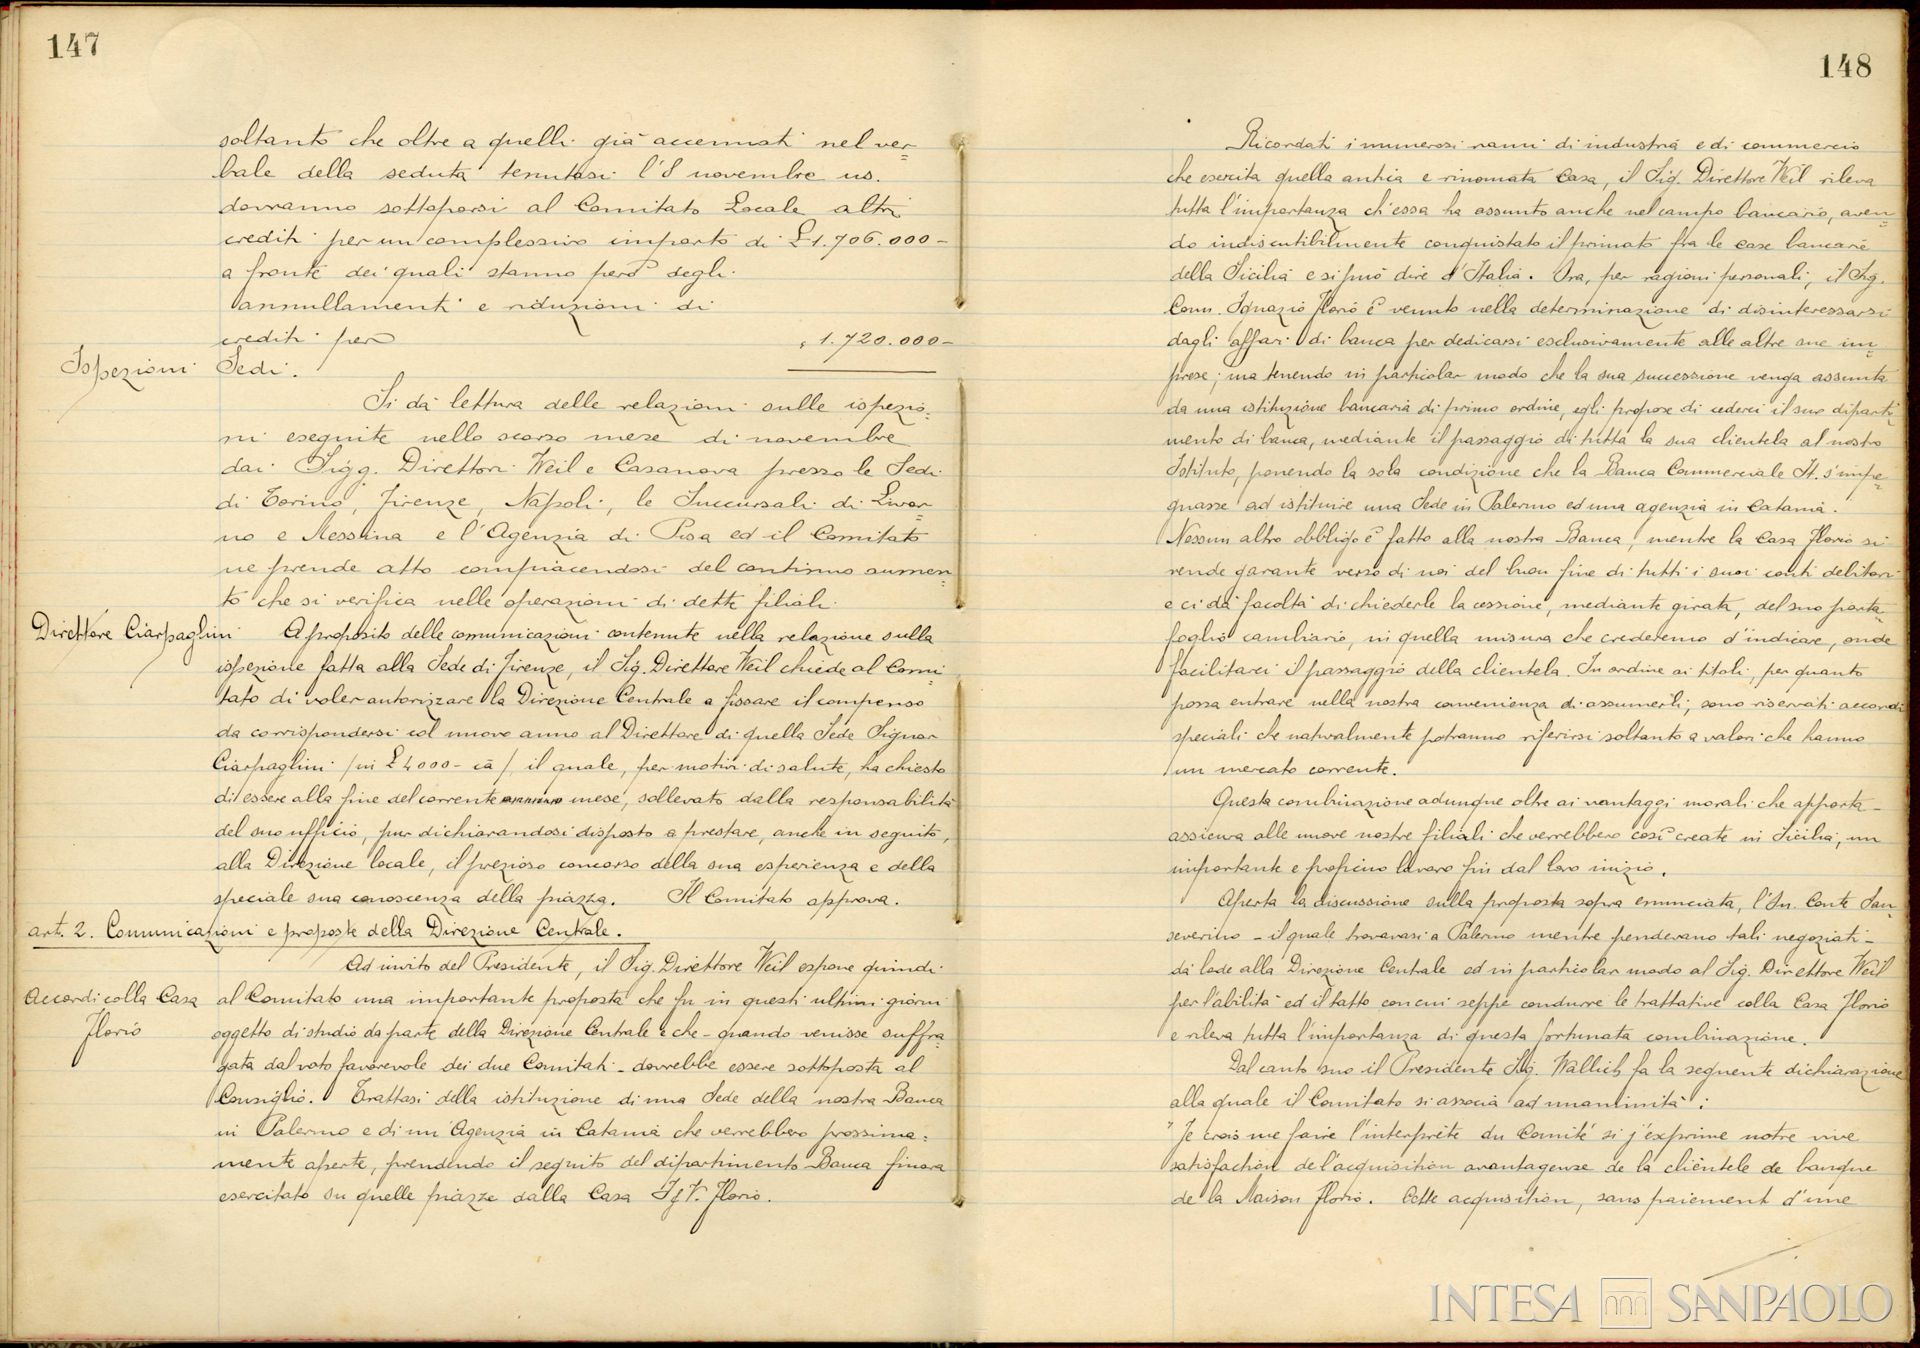 147
soltanto che oltre a quelli già accennati nel ver=
bale della seduta tenutasi l'8 novembre us.
dovranno sottoporsi al Comitato Locale altri
crediti per un complessivo importo di £ 1.706.000-
a fronte dei quali stanno però degli
annullamenti e riduzioni di
crediti per " 1.720.000-
Ispezioni Sedi.
Si dà lettura delle relazioni sulle ispezio=
ni eseguite nello scorso mese di novembre
dai Sigg. Direttori Weil e Casanova presso le Sedi
di Torino, Firenze, Napoli, le Succursali di Livor=
no e Messina e l'Agenzia di Pisa ed il Comitato
ne prende atto compiacendosi del continuo aumen=
to che si verifica nelle operazioni di dette filiali.
Direttore Ciarpaglini A proposito delle comunicazioni contenute nella relazione sulla
ispezione fatta alla Sede di Firenze, il Sig. Direttore Weil chiede al Comi
tato di voler autorizzare la Direzione Centrale a fissare il compenso
da corrispondersi col nuovo anno al Direttore di quella Sede Signor
Ciarpaglini / in £ 4000- ca / il quale, per motivi di salute, ha chiesto
di essere alla fine del corrente mese, sollevato dalla responsabilità
del suo ufficio, pur dichiarandosi disposto a prestare, anche in seguito,
alla Direzione locale, il prezioso concorso della sua esperienza e della
speciale sua conoscenza della piazza. Il Comitato approva.
art. 2. Comunicazioni e proposte della Direzione Centrale.
Ad invito del Presidente, il Sig. Direttore Weil espone quindi
Accordi colla Casa al Comitato una importante proposta che fu in questi ultimi giorni
Florio oggetto di studio da parte della Direzione Centrale e che - quando venisse suffra=
gata dal voto favorevole dei due Comitati - dovrebbe essere sottoposta al
Consiglio. Trattasi della istituzione di una Sede della nostra Banca
in Palermo e di un'Agenzia in Catania che verrebbero prossima=
mente aperte, prendendo il seguito del dipartimento Banca finora
esercitato su quelle piazze dalla Casa I. & V. Florio.
148
Ricordati i numerosi rami di industria e di commercio
che esercita quella antica e rinomata Casa, il Sig. Direttore Weil rileva
tutta l'importanza ch'essa ha assunto anche nel campo bancario, aven=
do indiscutibilmente conquistato il primato fra le case bancarie
della Sicilia e si può dire d'Italia. Ora, per ragioni personali, il Sig.
Comm. Ignazio Florio è venuto nella determinazione di disinteressarsi
dagli affari di banca per dedicarsi esclusivamente alle altre sue im=
prese; ma tenendo in particolar modo che la sua successione venga assunta
da una istituzione bancaria di primo ordine, egli propose di cederci il suo diparti=
mento di banca, mediante il passaggio di tutta la sua clientela al nostro
Istituto, ponendo la sola condizione che la Banca Commerciale It. s'impe=
gnasse ad istituire una Sede in Palermo ed una agenzia in Catania.
Nessun altro obbligo è fatto alla nostra Banca, mentre la Casa Florio si
rende garante verso di noi del buon fine di tutti i suoi conti debitori
e ci dà facoltà di chiederle la cessione, mediante girata, del suo porta=
foglio cambiario, in quella misura che crederemo d'indicare, onde
facilitarci il passaggio della clientela. In ordine ai titoli, per quanto
possa entrare nella nostra convenienza di assumerli, sono riservati accordi
speciali che naturalmente potranno riferirsi soltanto a valori che hanno
un mercato corrente.
Questa combinazione adunque oltre ai vantaggi morali che apporta -
assicura alle nuove nostre filiali che verrebbero così create in Sicilia, un
importante e proficuo lavoro fin dal loro inizio.
Aperta la discussione sulla proposta sopra enunciata, l'On. Conte San=
severino - il quale trovavasi a Palermo mentre pendevano tali negoziati -
dà lode alla Direzione Centrale ed in particolar modo al Sig. Direttore Weil
per l'abilità ed il tatto con cui seppe condurre le trattative colla Casa Florio
e rileva tutta l'importanza di questa fortunata combinazione.
Dal canto suo il Presidente Sig. Wallich fa la seguente dichiarazione
alla quale il Comitato si associa ad unanimità:
"Je crois me faire l'interprète du Comité si j'exprime notre vive
satisfaction de l'acquisition avantageuse de la clientele de banque
de la Maison Florio. Cette acquisition, sans paiement d'une
INTESA SANPAOLO